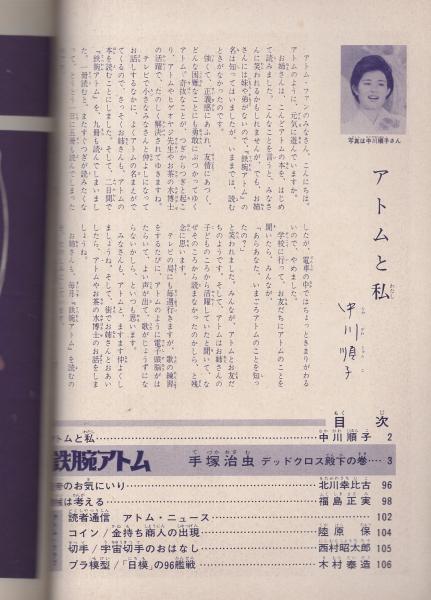 写真は中川順子さん
アトムと私
中川順子
アトム・ファンのみなさん、こんにちは。
アトムのように、元気で遊んでいますか。
お姉さんは、アトムの本を、はじめ
て読みました。こんなことを言うと、みなさ
んに笑われるかもしれませんが、でも、お姉
さんには妹や弟がないので、『鉄腕アトム』の
名は知ってはいましたが、いままでは、読む
ときがなかったのです。
強くて、正義感にあふれ、友情にあつく、
どんな困難なことにも勇敢にぶつかってゆく
アトム。奇抜なことが、つぎからつぎと起こ
り、アトムやヒゲオヤジ先生やお茶の水博士
の活躍で、たのしく解決されてゆきますね。
テレビで小さなみなさんと仲よしになって
お話しするなかに、よくアトムの名まえがで
てくるので、さっそくお姉さんも、アトムの
本を読むことにしました。そして、二日間で
『鉄腕アトム』を、十冊も読んでしまいまし
た。一冊読むと、またすぐ次が読みたくな
って、とうとう一日に五冊も読んでしまった
したが、電車の中ではちょっときまりがわる
いので、やめました。
学校に行って、お友だちにアトムのことを
聞いたら、みんなが、
「あらあなた、いまごろアトムのことを知っ
たの？」
と笑われました。みんなが、アトムとお友だ
ちのようです。そして、アトムはお姉さんの
子どものころから活躍していたと聞いて、な
ぜそのころから読まなかったのかしら、と残
念に思います。
テレビの局に、毎週行きますが、歌の練習
をするたびに、アトムのように電子頭脳がは
たらいて、よい声が出て、歌がじょうずにな
らないかしら、といつも思います。
みなさんも、アトムと、ますます仲よくし
ましょうね。そして、街でお姉さんとおあい
したら、アトムやお茶の水博士のお話をしま
しょうね。
お姉さんも、毎月『鉄腕アトム』を読むの
目次
アトムと私 中川順子 2
鉄腕アトム 手塚治虫 デッドクロス殿下の巻 3
のお気にいり 北川幸比古 96
は考える 福島正実 98
読者通信 アトム・ニュース 102
コイン/金持ち商人の出現 陸原保 104
切手/宇宙切手のおはなし 西村昭太郎 105
プラ模型/「日模」の96艦戦 木村泰造 106